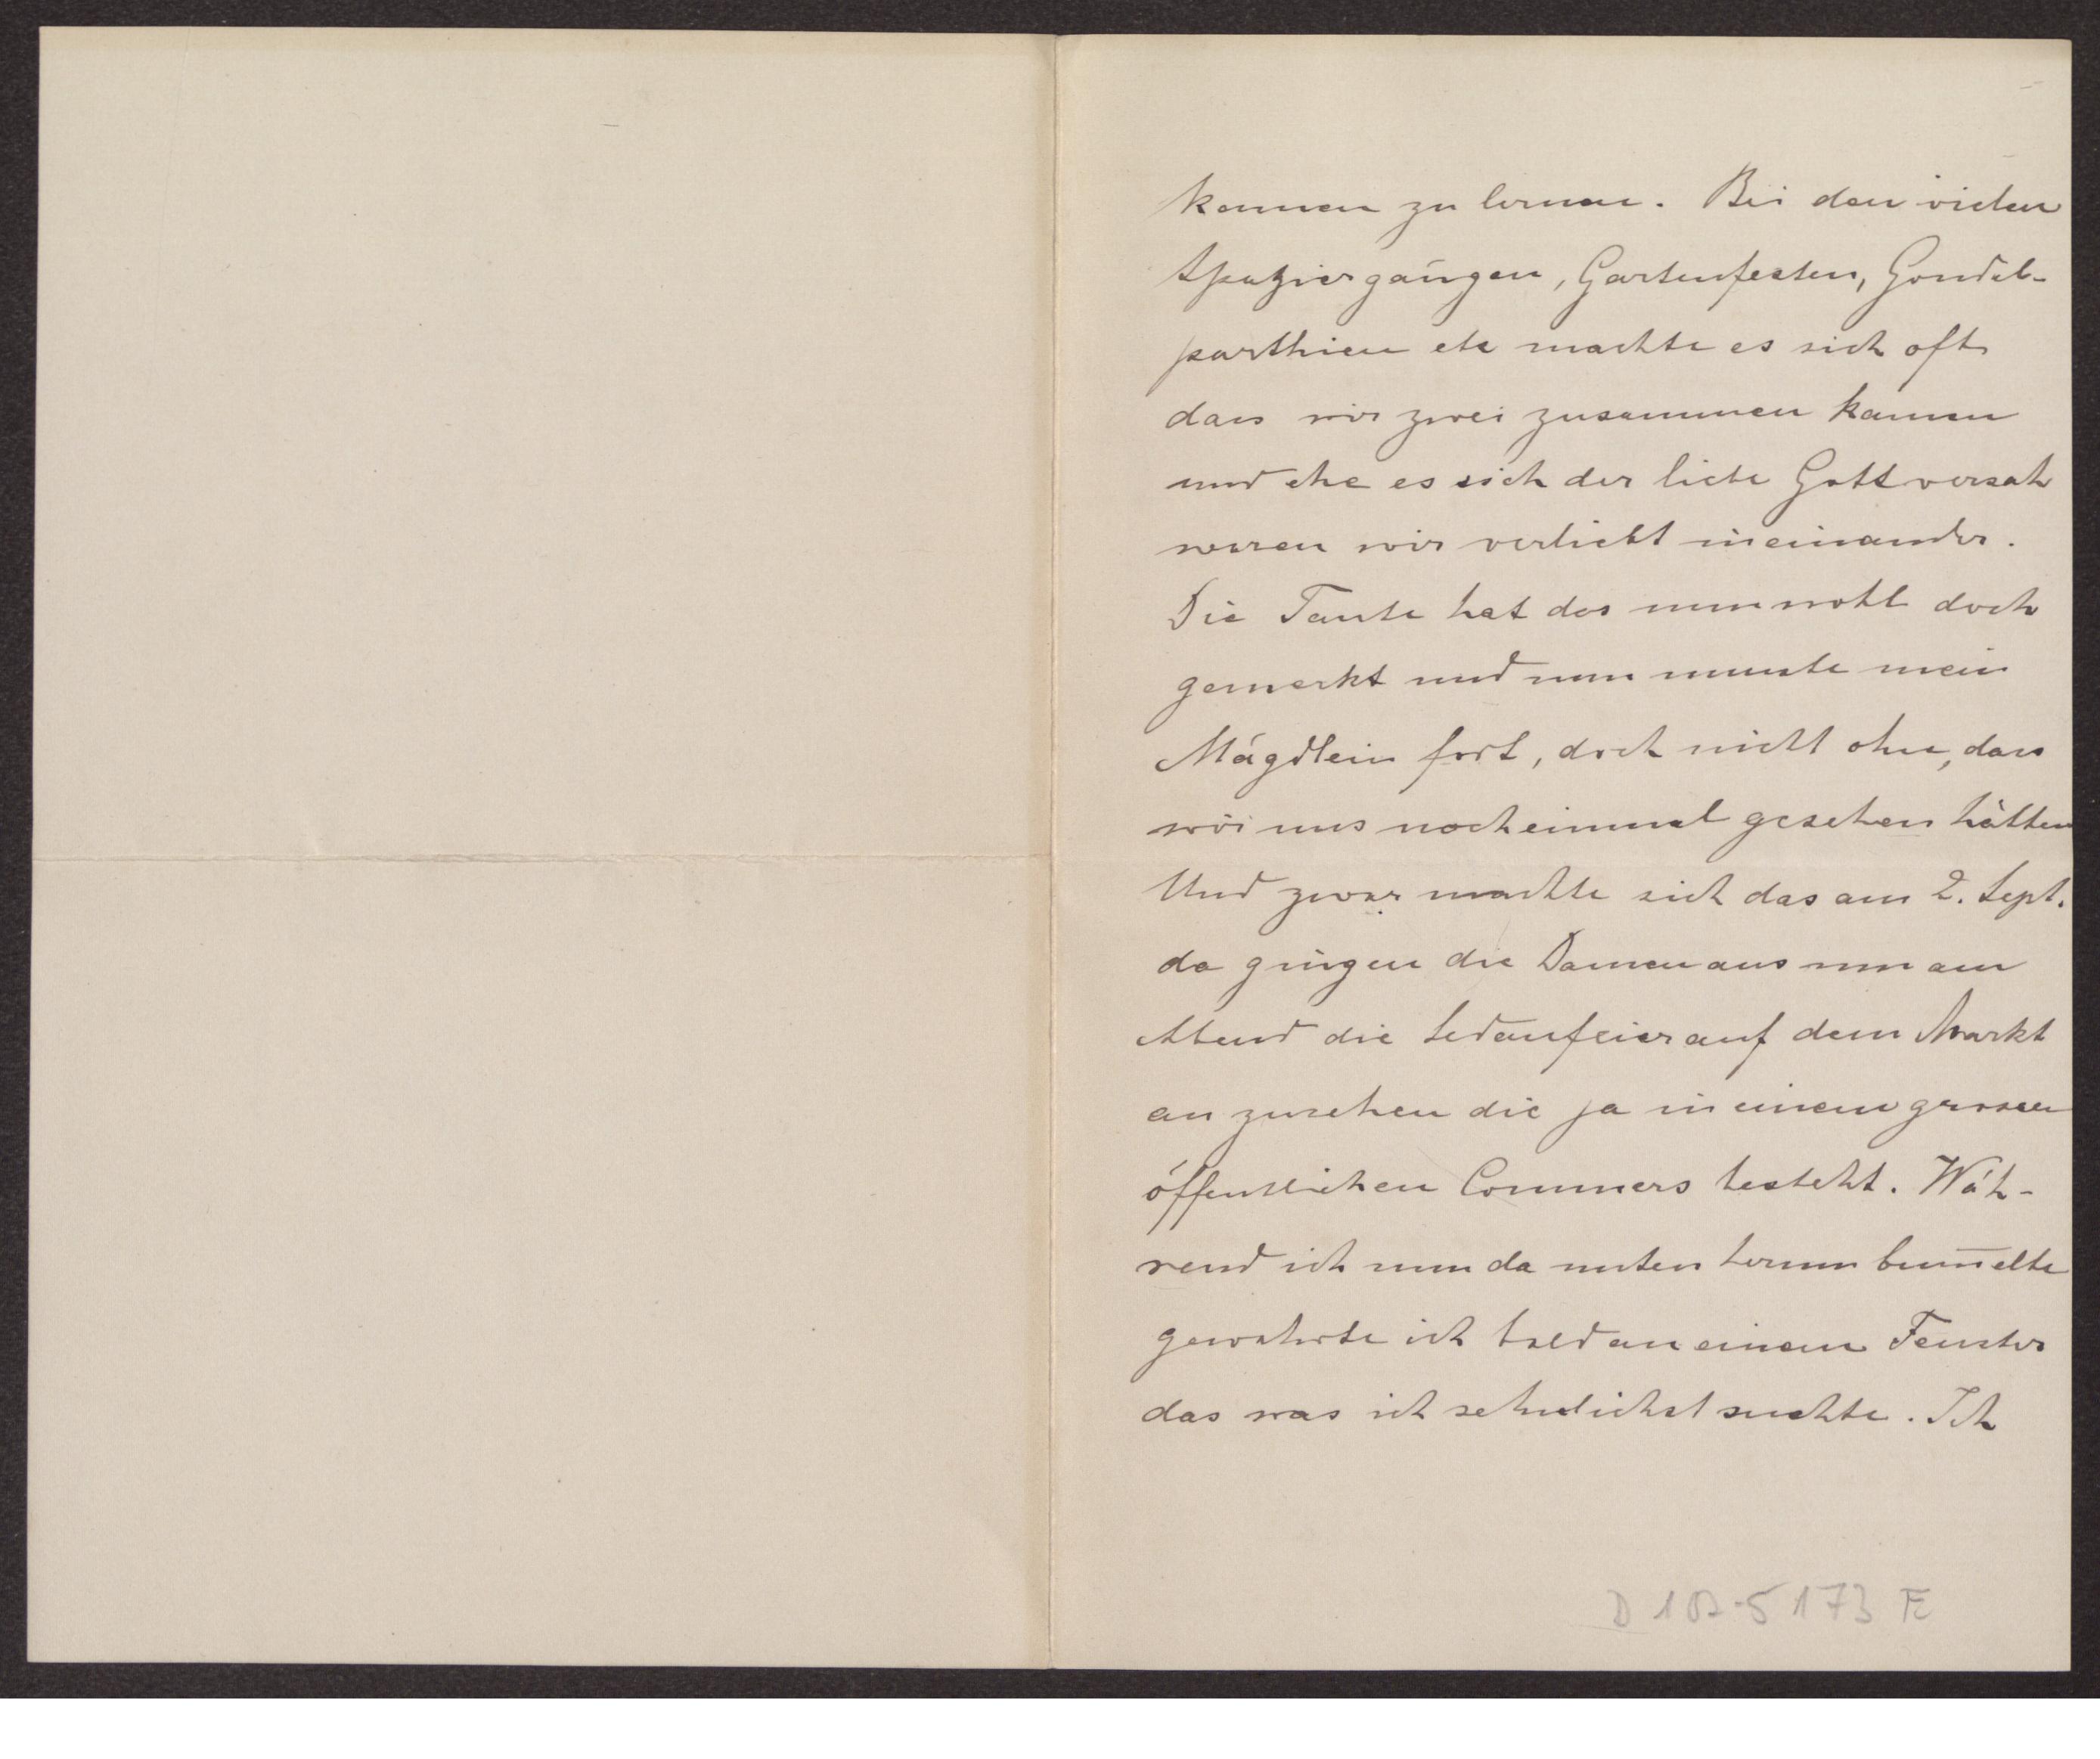 kennen zu lernen. Bei den vielen
Spaziergängen, Gartenfesten, Gondel-
parthien etc machte es sich oft
dass wir zwei zusammen kamen
und ehe es sich der liebe Gott versah
waren wir verliebt ineinander.
Die Tante hat das nun wohl doch
gemerkt und nun musste mein
Mägdlein fort, doch nicht ohne, dass
wir uns noch einmal gesehen hätten
Und zwar machte sich das am 2. Sept.
da gingen die Damen aus um am
Abend die Sedanfeier auf dem Markt
an zusehen die ja in einem grossen
öffentlichen Commers besteht. Wäh-
rend ich nun da unten herum bum̅elte
gewahrte ich bald an einem Fenster
das was ich sehnlichst suchte. Ich
D 187-5173 F